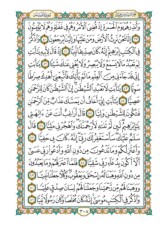 وأنذرهم يوم الحسرة إذ قضي الأمر وهم في غفلة وهم لا يؤمنون
إنا نحن نرث الأرض ومن عليها وإلينا يرجعون واذكر
في الكتاب إبراهيم إنه كان صديقا نبيا إذ قال لأبيه يأبت
لم تعبد ما لا يسمع ولا يبصر ولا يغني عنك شيئا يأبت
إني قد جاءني من العلم ما لم يأتك فاتبعني أهدك صراطا
سويا يأبت لا تعبد الشيطان إن الشيطان كان للرحمن
عصيا يأبت إني أخاف أن يمسك عذاب من الرحمن
فتكون للشيطان وليا قال أراغب أنت عن ءالهتي
يإبراهيم لئن لم تنته لأرجمنك واهجرني مليا قال
سلام عليك سأستغفر لك ربي إنه كان بي حفيا
وأعتزلكم وما تدعون من دون الله وأدعو ربي عسى
ألا أكون بدعاء ربي شقيا فلما اعتزلهم وما يعبدون
من دون الله وهبنا له إسحاق ويعقوب وكلا جعلنا نبيا
ووهبنا لهم من رحمتنا وجعلنا لهم لسان صدق عليا
واذكر في الكتاب موسى إنه كان مخلصا وكان رسولا نبيا
٣٠٨